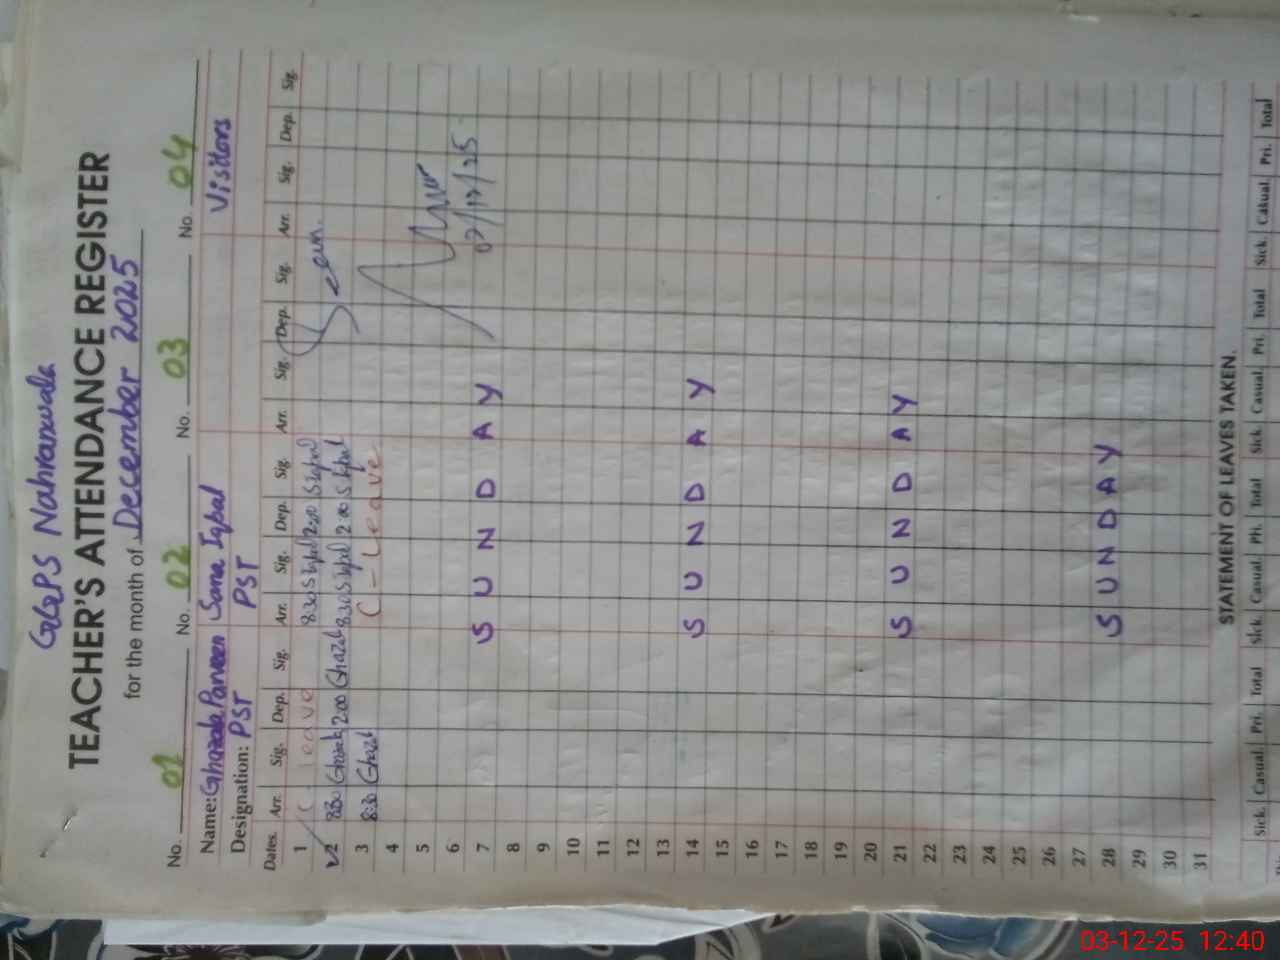 GGPS Nahranwala
TEACHER'S ATTENDANCE REGISTER
for the month of December 2025
No. 01 No. 02 No. 03 No. 04
Name: Ghazala Parveen Sana Iqbal Visitors
Designation: PST PST
Dates. Arr. Sig. Dep. Sig. Arr. Sig. Dep. Sig. Arr. Sig. Dep. Sig. Arr. Sig. Dep. Sig.
1 C. leave 8:30 S Iqbal 2:00 S Iqbal
2 830 Ghazal 200 Ghazal 8:30 S Iqbal 2:00 S Iqbal
3 8:30 Ghazal C - Leave
4
5
6
7 SUNDAY
8
9
10
11
12
13
14 SUNDAY
15
16
17
18
19
20
21 SUNDAY
22
23
24
25
26
27
28 SUNDAY
29
30
31
STATEMENT OF LEAVES TAKEN.
Sick. Casual. Pri. Total Sick. Casual. Pri. Total Sick. Casual. Pri. Total Sick. Casual. Pri. Total
03-12-25 12:40